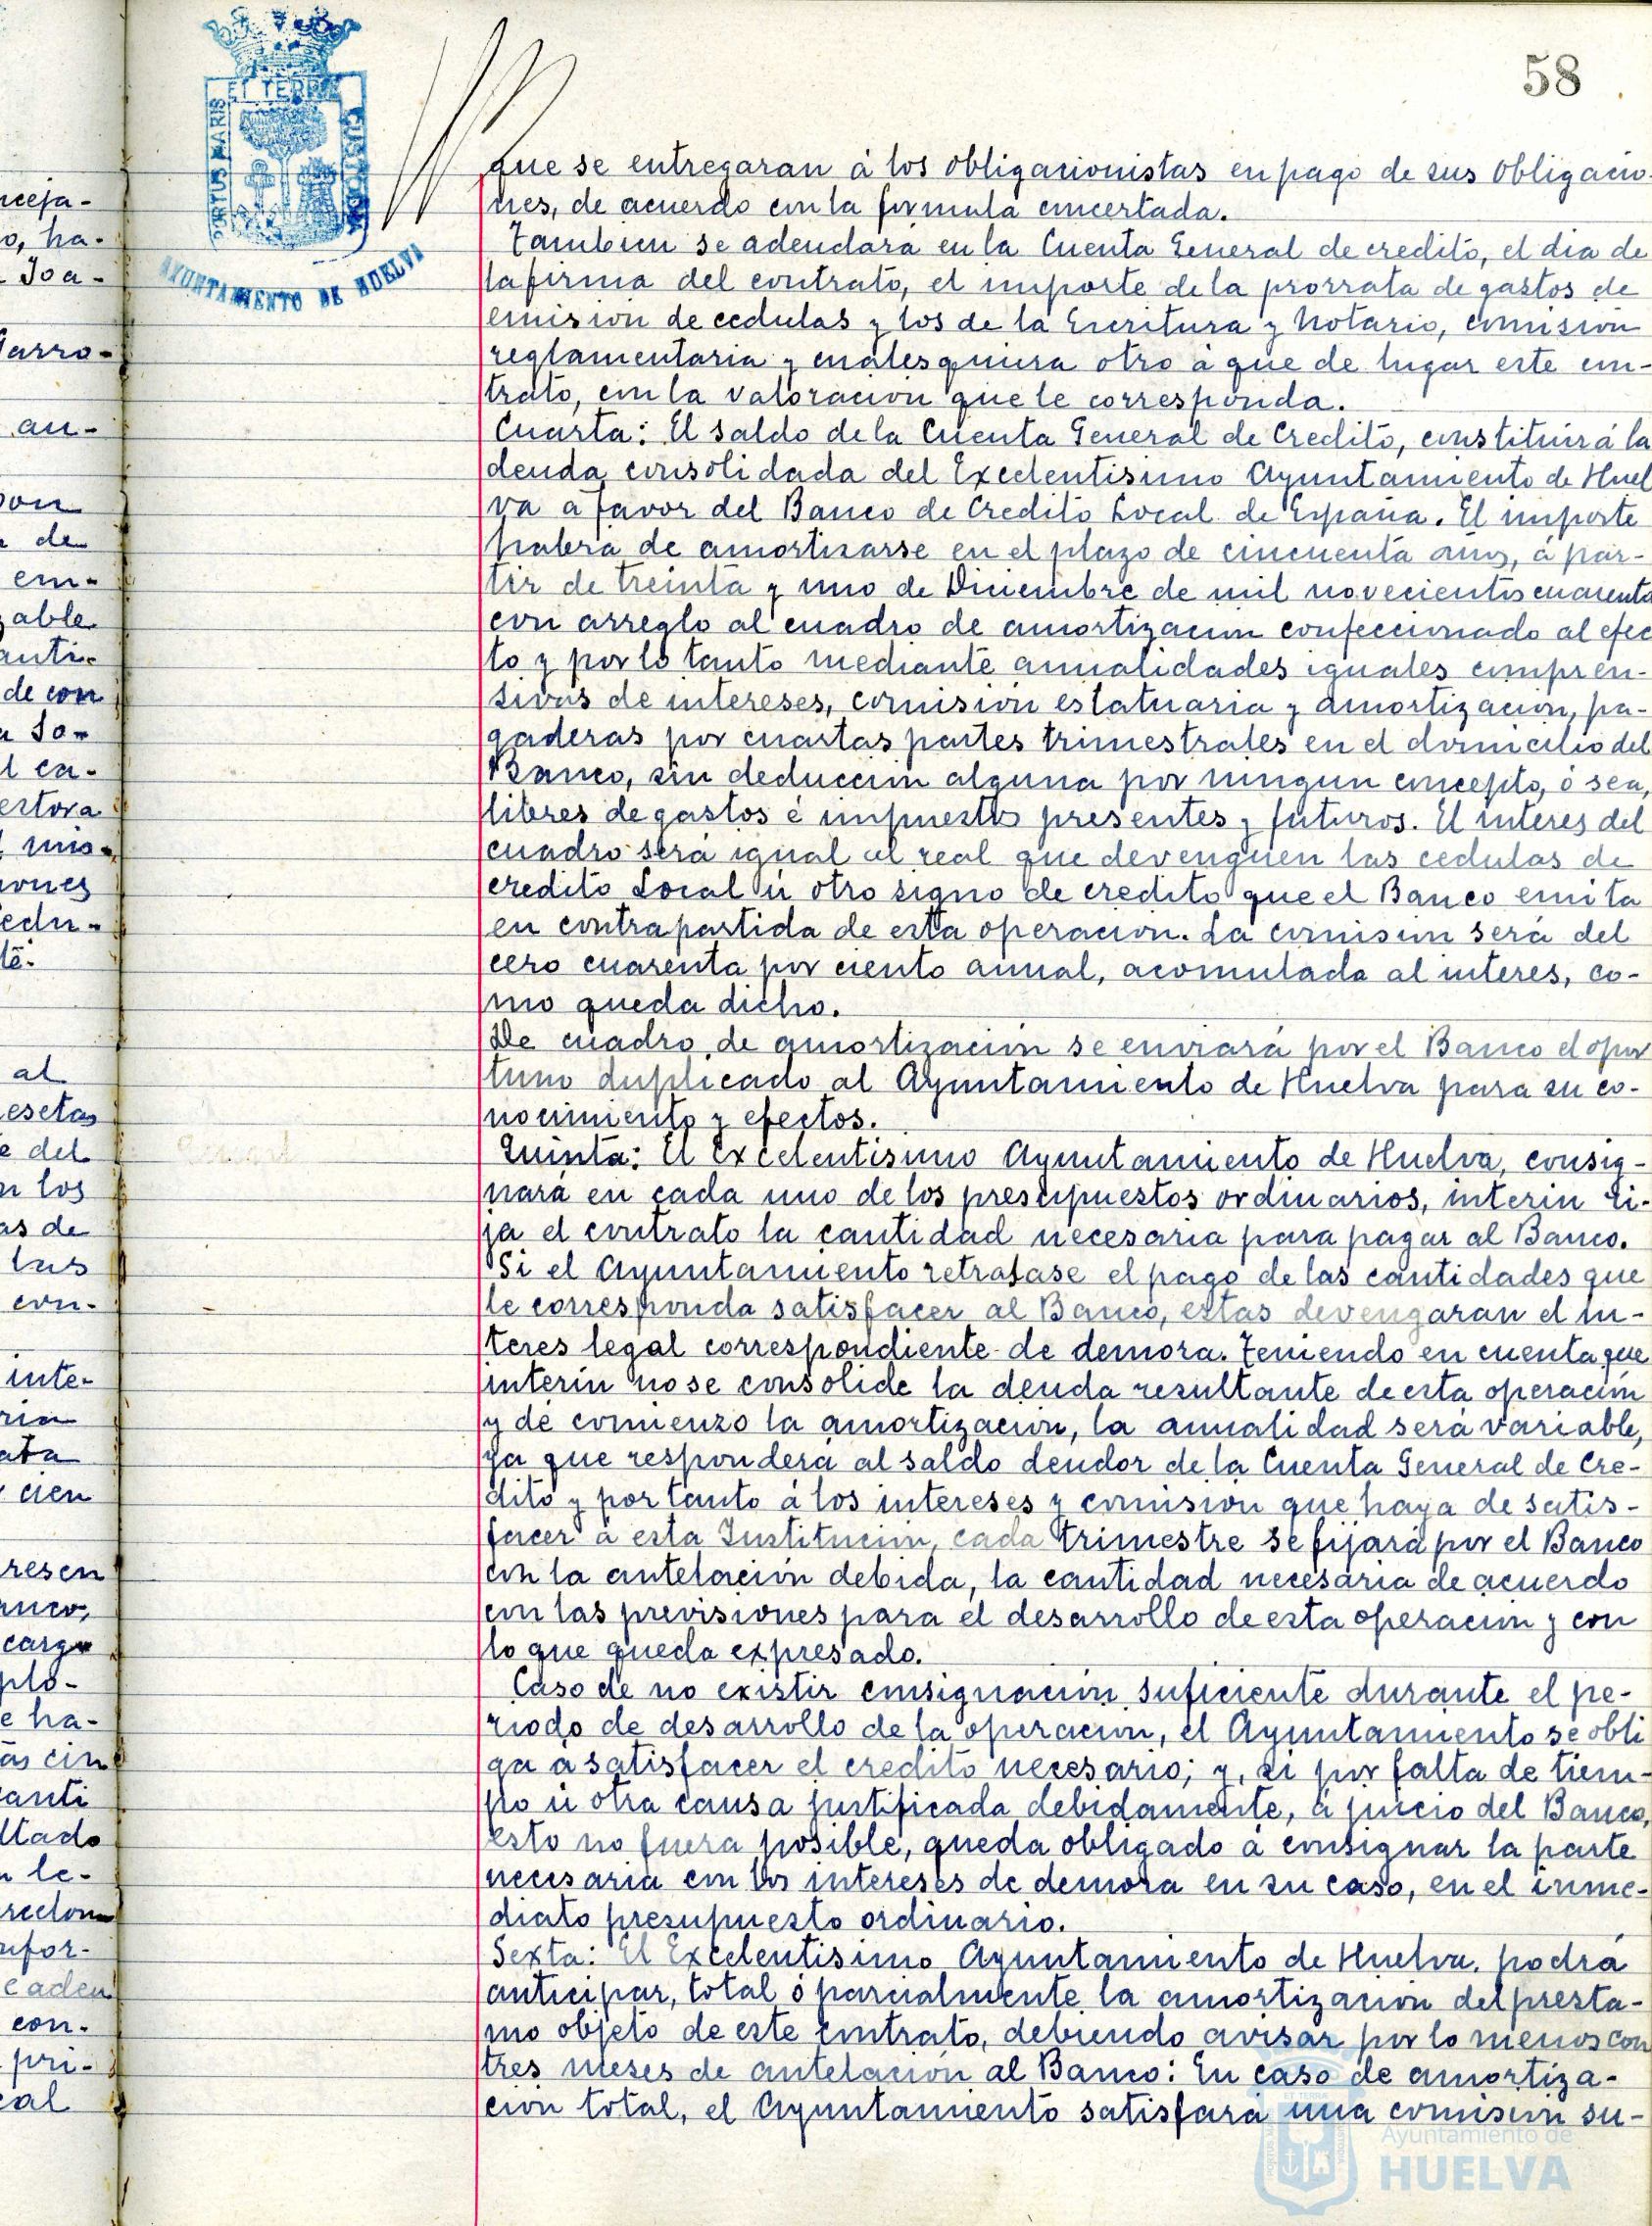 58
ET TERRE
PORTUS MARIS
CUSTODIA
AYUNTAMIENTO DE HUELVA
que se entregaran á los obligacionistas en pago de sus obligacio-
nes, de acuerdo con la formula concertada.
Tambien se adeudará en la Cuenta General de credito, el dia de
la firma del contrato, el importe de la prorrata de gastos de
emision de cedulas y los de la Escritura y Notario, comision
reglamentaria y cualesquiera otro á que de lugar este con-
trato, con la valoracion que le corresponda.
Cuarta: El saldo de la Cuenta General de Credito, constituirá la
deuda consolidada del Excelentisimo Ayuntamiento de Huel
va a favor del Banco de Credito Local de España. El importe
habrá de amortizarse en el plazo de cincuenta años, á par-
tir de treinta y uno de Diciembre de mil novecientos cuarenta
con arreglo al cuadro de amortizacion confeccionado al efec
to y por lo tanto mediante anualidades iguales compren-
sivas de intereses, comision estatuaria y amortizacion, pa-
gaderas por cuartas partes trimestrales en el domicilio del
Banco, sin deduccion alguna por ningun concepto, ó sea,
libres de gastos é impuestos presentes y futuros. El interes del
cuadro será igual al real que devenguen las cedulas de
credito Local ú otro signo de credito que el Banco emita
en contrapartida de esta operacion. La comision será del
cero cuarenta por ciento anual, acomulada al interes, co-
mo queda dicho.
De cuadro de amortizacion se enviará por el Banco el opor
tuno duplicado al Ayuntamiento de Huelva para su co-
nocimiento y efectos.
Quinta: El Excelentisimo Ayuntamiento de Huelva, consig-
nará en cada uno de los presupuestos ordinarios, interin ri-
ja el contrato la cantidad necesaria para pagar al Banco.
Si el Ayuntamiento retrasase el pago de las cantidades que
le corresponda satisfacer al Banco, estas devengaran el in-
teres legal correspondiente de demora. Teniendo en cuenta que
interin no se consolide la deuda resultante de esta operacion
y dé comienzo la amortizacion, la anualidad será variable,
ya que responderá al saldo deudor de la Cuenta General de Cre-
dito y por tanto á los intereses y comision que haya de satis-
facer á esta Institucion, cada trimestre se fijará por el Banco
con la antelacion debida, la cantidad necesaria de acuerdo
con las previsiones para el desarrollo de esta operacion y con
lo que queda expresado.
Caso de no existir consignacion suficiente durante el pe-
riodo de desarrollo de la operacion, el Ayuntamiento se obli
ga á satisfacer el credito necesario; y, si por falta de tiem-
po ú otra causa justificada debidamente, á juicio del Banco,
esto no fuera posible, queda obligado á consignar la parte
necesaria con los intereses de demora en su caso, en el inme-
diato presupuesto ordinario.
Sexta: El Excelentisimo Ayuntamiento de Huelva, podrá
anticipar, total ó parcialmente la amortizacion del presta-
mo objeto de este contrato, debiendo avisar por lo menos con
tres meses de antelacion al Banco: En caso de amortiza-
cion total, el Ayuntamiento satisfará una comision su-
Ayuntamiento de
HUELVA